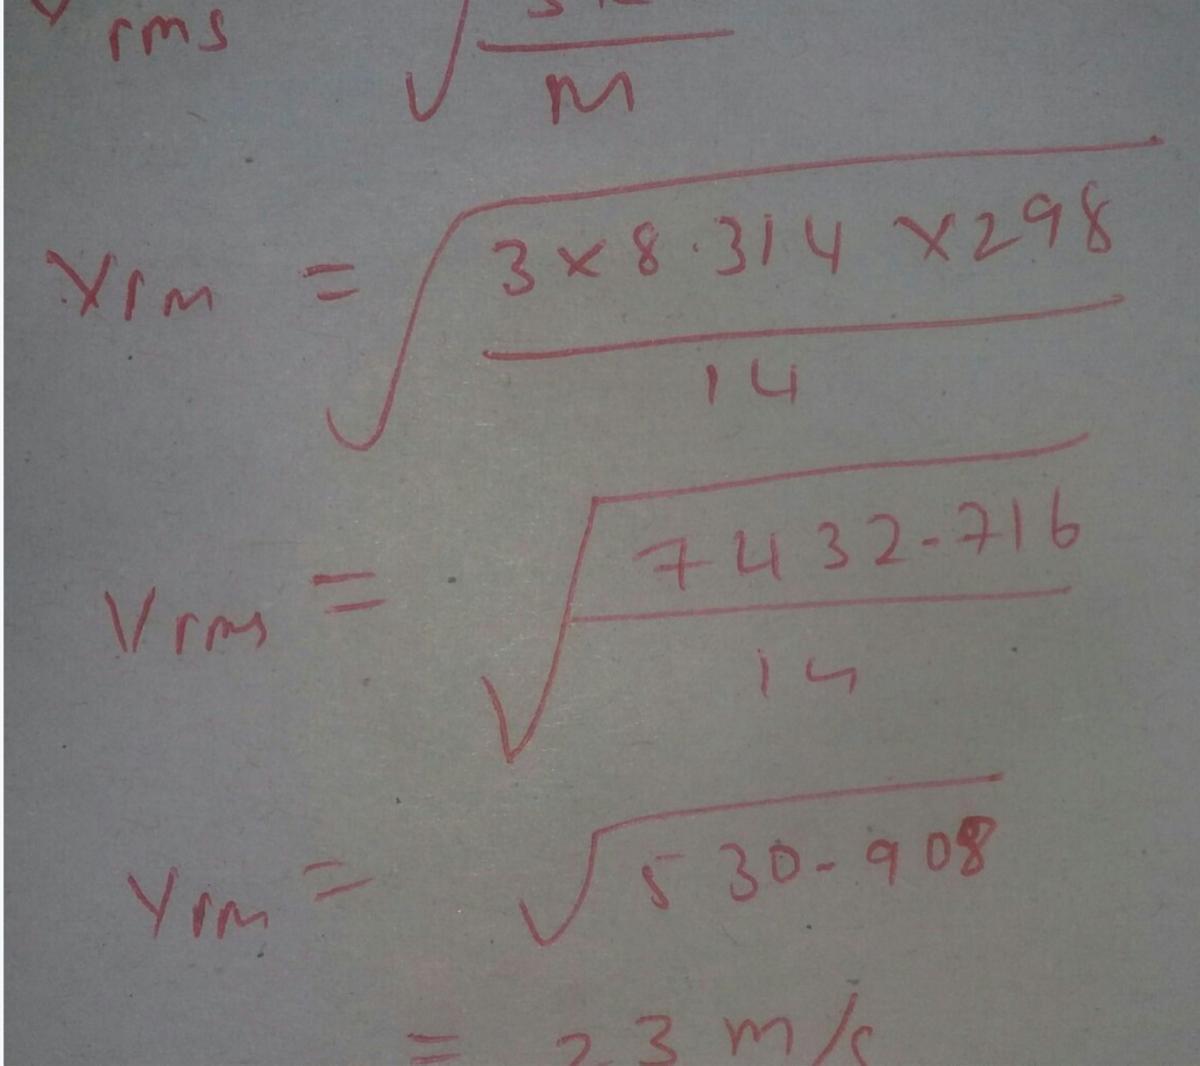 rms √ m
Vrm = √ 3 x 8.314 x 298
14
Vrms = √ 7432.716
14
Vrm = √ 530.908
= 23 m/s